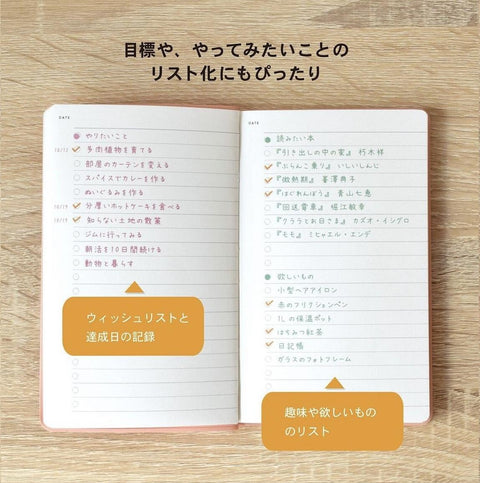 目標や、やってみたいことの
リスト化にもぴったり
DATE
やりたいこと
10/12 多肉植物を育てる
部屋のカーテンを変える
スパイスでカレーを作る
ぬいぐるみを作る
10/19 分厚いホットケーキを食べる
10/19 知らない土地の散策
ジムに行ってみる
朝活を10日間続ける
動物と暮らす
ウィッシュリストと
達成日の記録
DATE
読みたい本
『引き出しの中の家』 朽木祥
『ぶらんこ乗り』 いしいしんじ
『微熱期』 峯澤典子
『はぐれんぼう』 青山七恵
『回送電車』 堀江敏幸
『クララとお日さま』 カズオ・イシグロ
『モモ』 ミヒャエル・エンデ
欲しいもの
小型ヘアアイロン
赤のフリクションペン
1Lの保温ポット
はちみつ紅茶
日記帳
ガラスのフォトフレーム
趣味や欲しいもの
のリスト